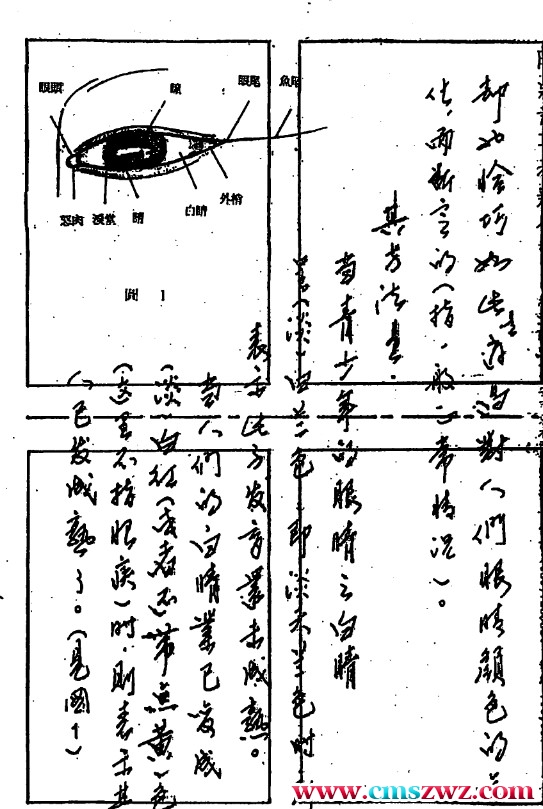 眼頭
瞳
眼尾
魚尾
怒肉
淚堂
睛
白睛
外梢
圖 1
却如恰巧如此 對人們眼睛顏色的
估而斷定的(指一般正常情況)。
其方法是:
當青少年的眼睛之白睛
呈(淡)白蘭色，即淡天蘭色時
表示此子发育業未成熟。
當人們的白睛業已变成
(淡)白征(或者不帶焦黃)色
(这里不指眼疾)时，則表示其
已发成熟了。(見圖十)
www.cmszwz.com